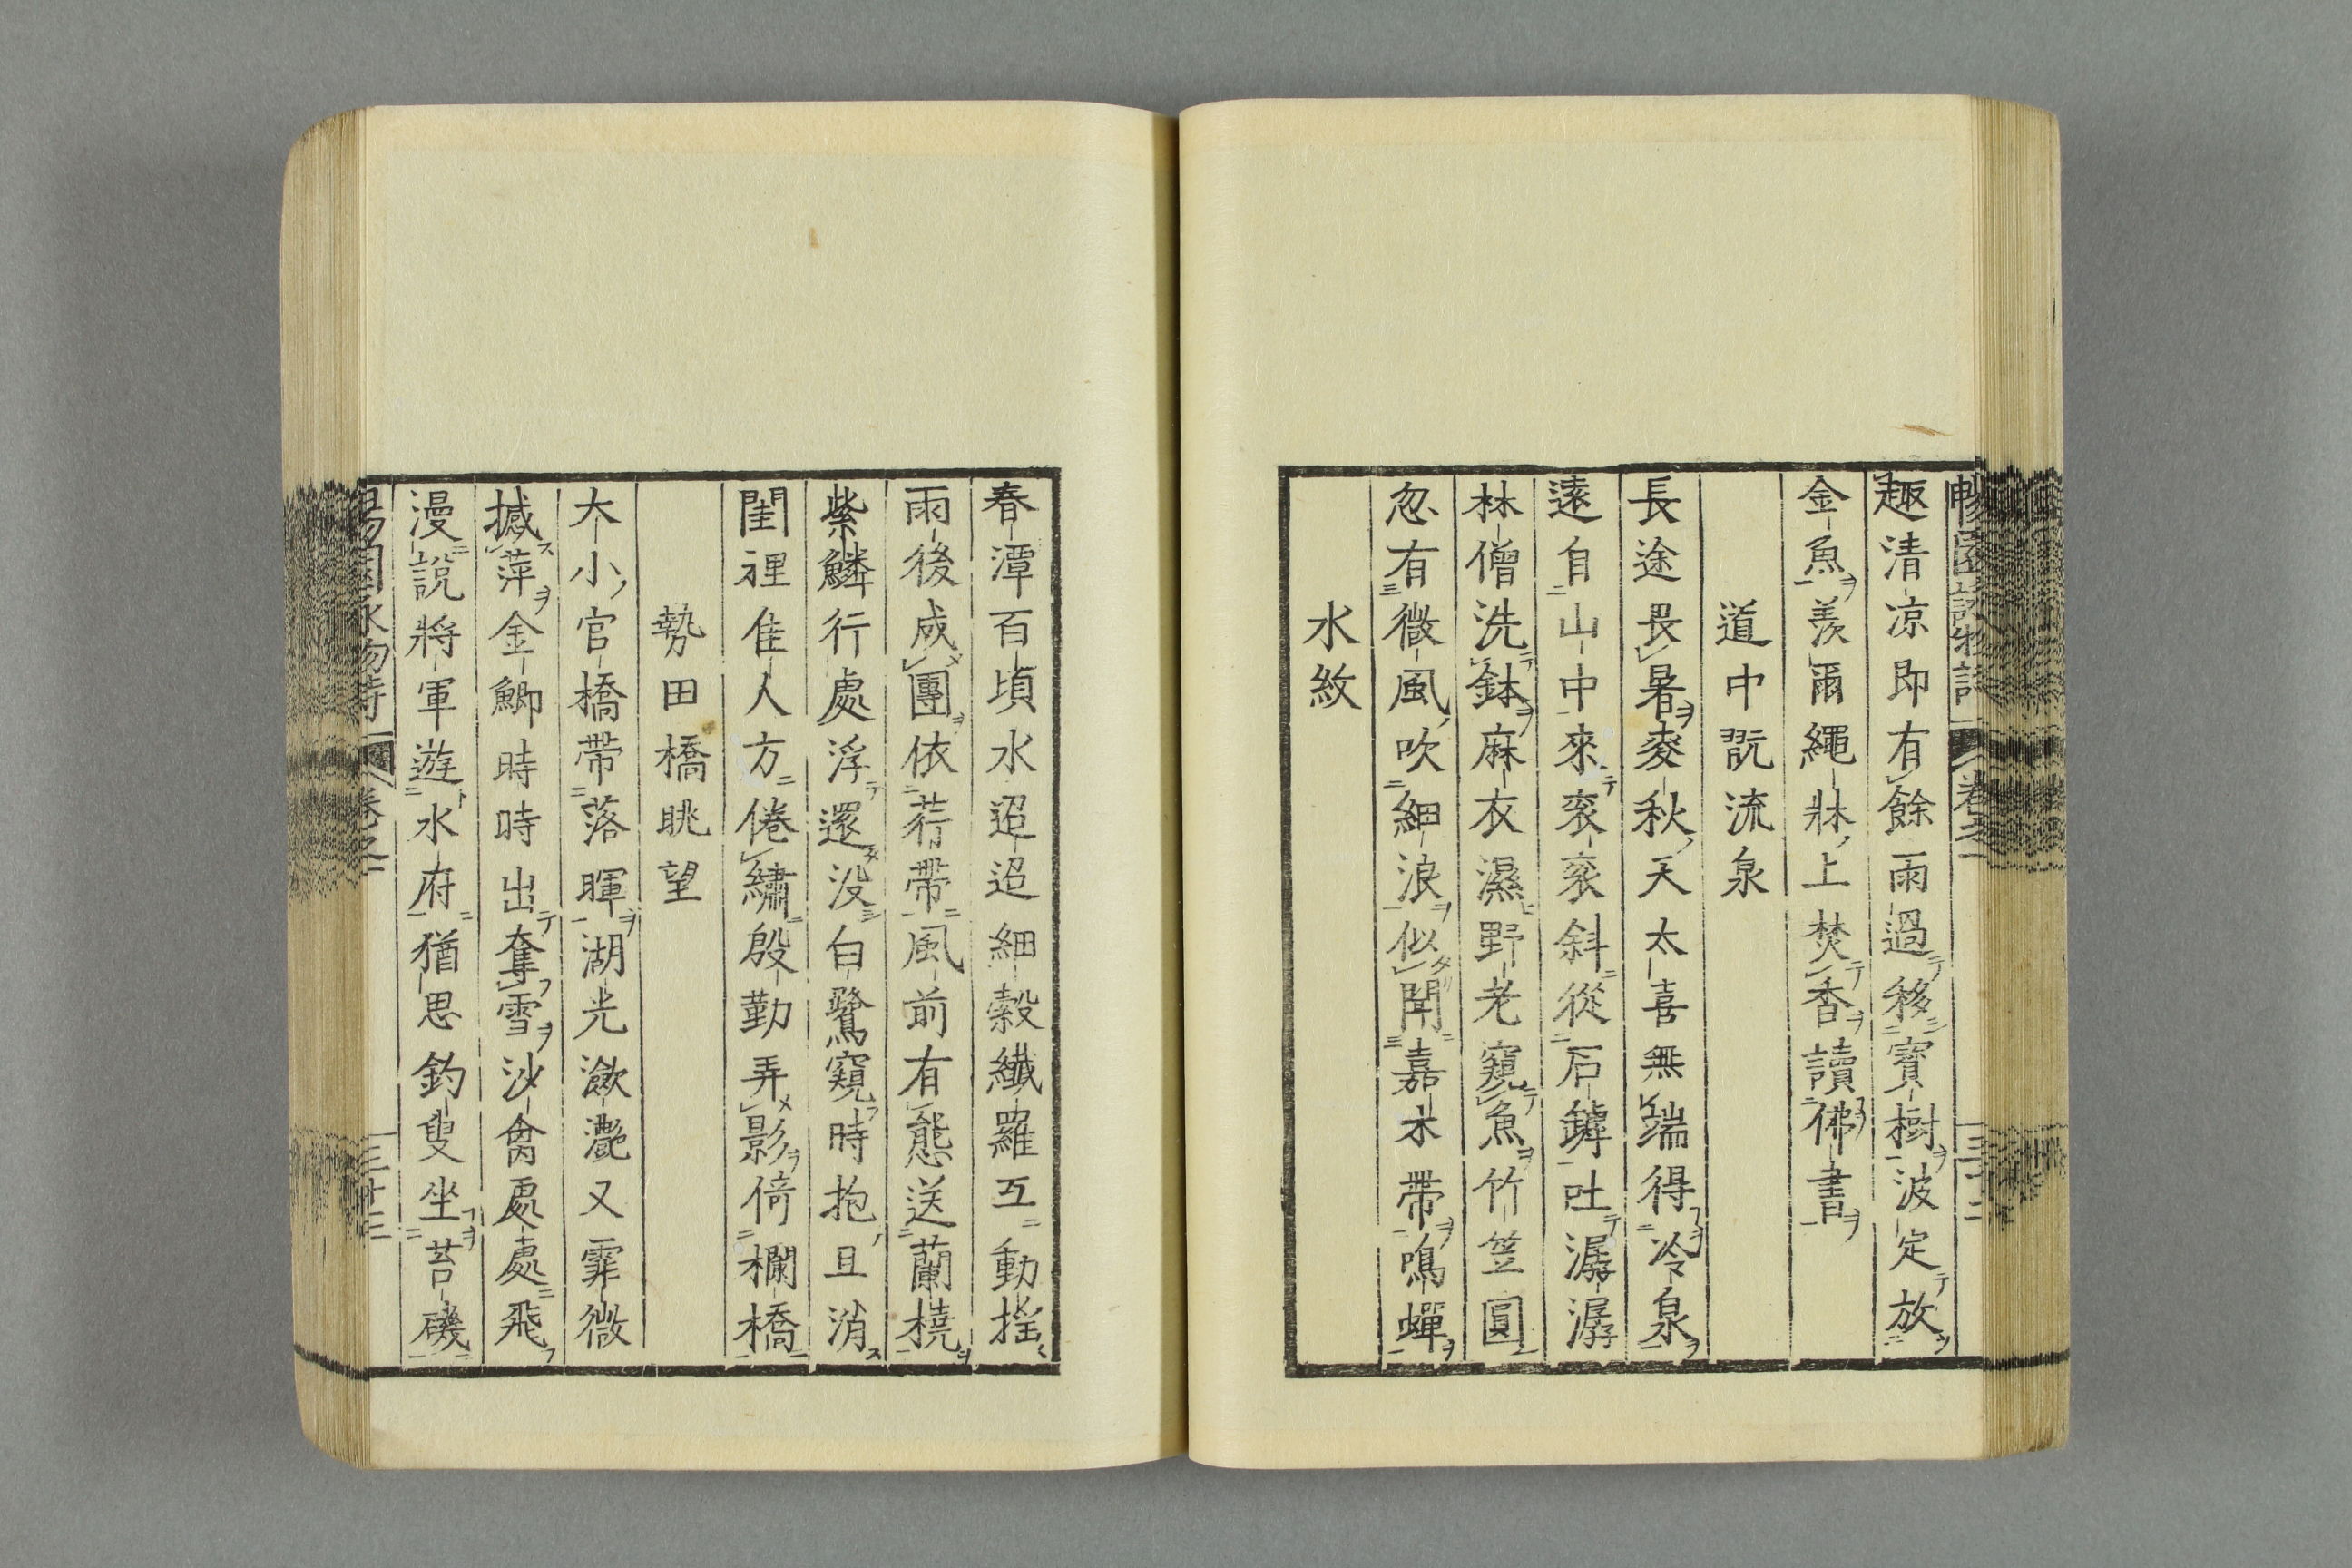 趣清凉即有餘雨過移寶樹波定放
金魚羨爾繩牀上焚香讀佛書
道中翫流泉
長途畏暑麥秋天太喜無端得冷泉
遠自山中來衮衮斜從石罅吐潺潺
林僧洗鉢麻衣濕野老窺魚竹笠圓
忽有微風吹細浪似聞嘉木帶鳴蟬
水紋
春潭百頃水迢迢細縠纖羅互動搖
雨後成團依荇帶風前有態送蘭橈
紫鱗行處浮還沒白鷺窺時抱且消
閨裡佳人方倦繡殷勤弄影倚欄橋
勢田橋眺望
大小官橋帶落暉湖光瀲灔又霏微
撼萍金鯽時時出奪雪沙禽處處飛
漫說將軍遊水府猶思釣叟坐苔磯